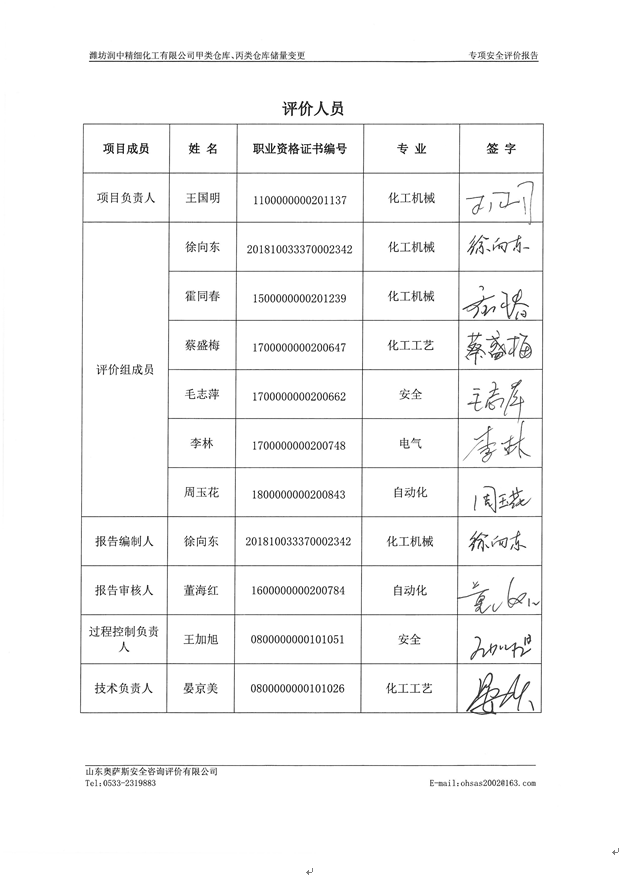 潍坊润中精细化工有限公司甲类仓库、丙类仓库储量变更 专项安全评价报告
评价人员
项目成员 姓 名 职业资格证书编号 专 业 签 字
项目负责人 王国明 1100000000201137 化工机械
评价组成员
徐向东 201810033370002342 化工机械 徐向东
霍同春 1500000000201239 化工机械
蔡盛梅 1700000000200647 化工工艺 蔡盛梅
毛志萍 1700000000200662 安全 毛志萍
李林 1700000000200748 电气 李林
周玉花 1800000000200843 自动化 周玉花
报告编制人 徐向东 201810033370002342 化工机械 徐向东
报告审核人 董海红 1600000000200784 自动化
过程控制负责
人 王加旭 0800000000101051 安全
技术负责人 晏京美 0800000000101026 化工工艺
山东奥萨斯安全咨询评价有限公司
Tel:0533-2319883 E-mail:ohsas2002@163.com